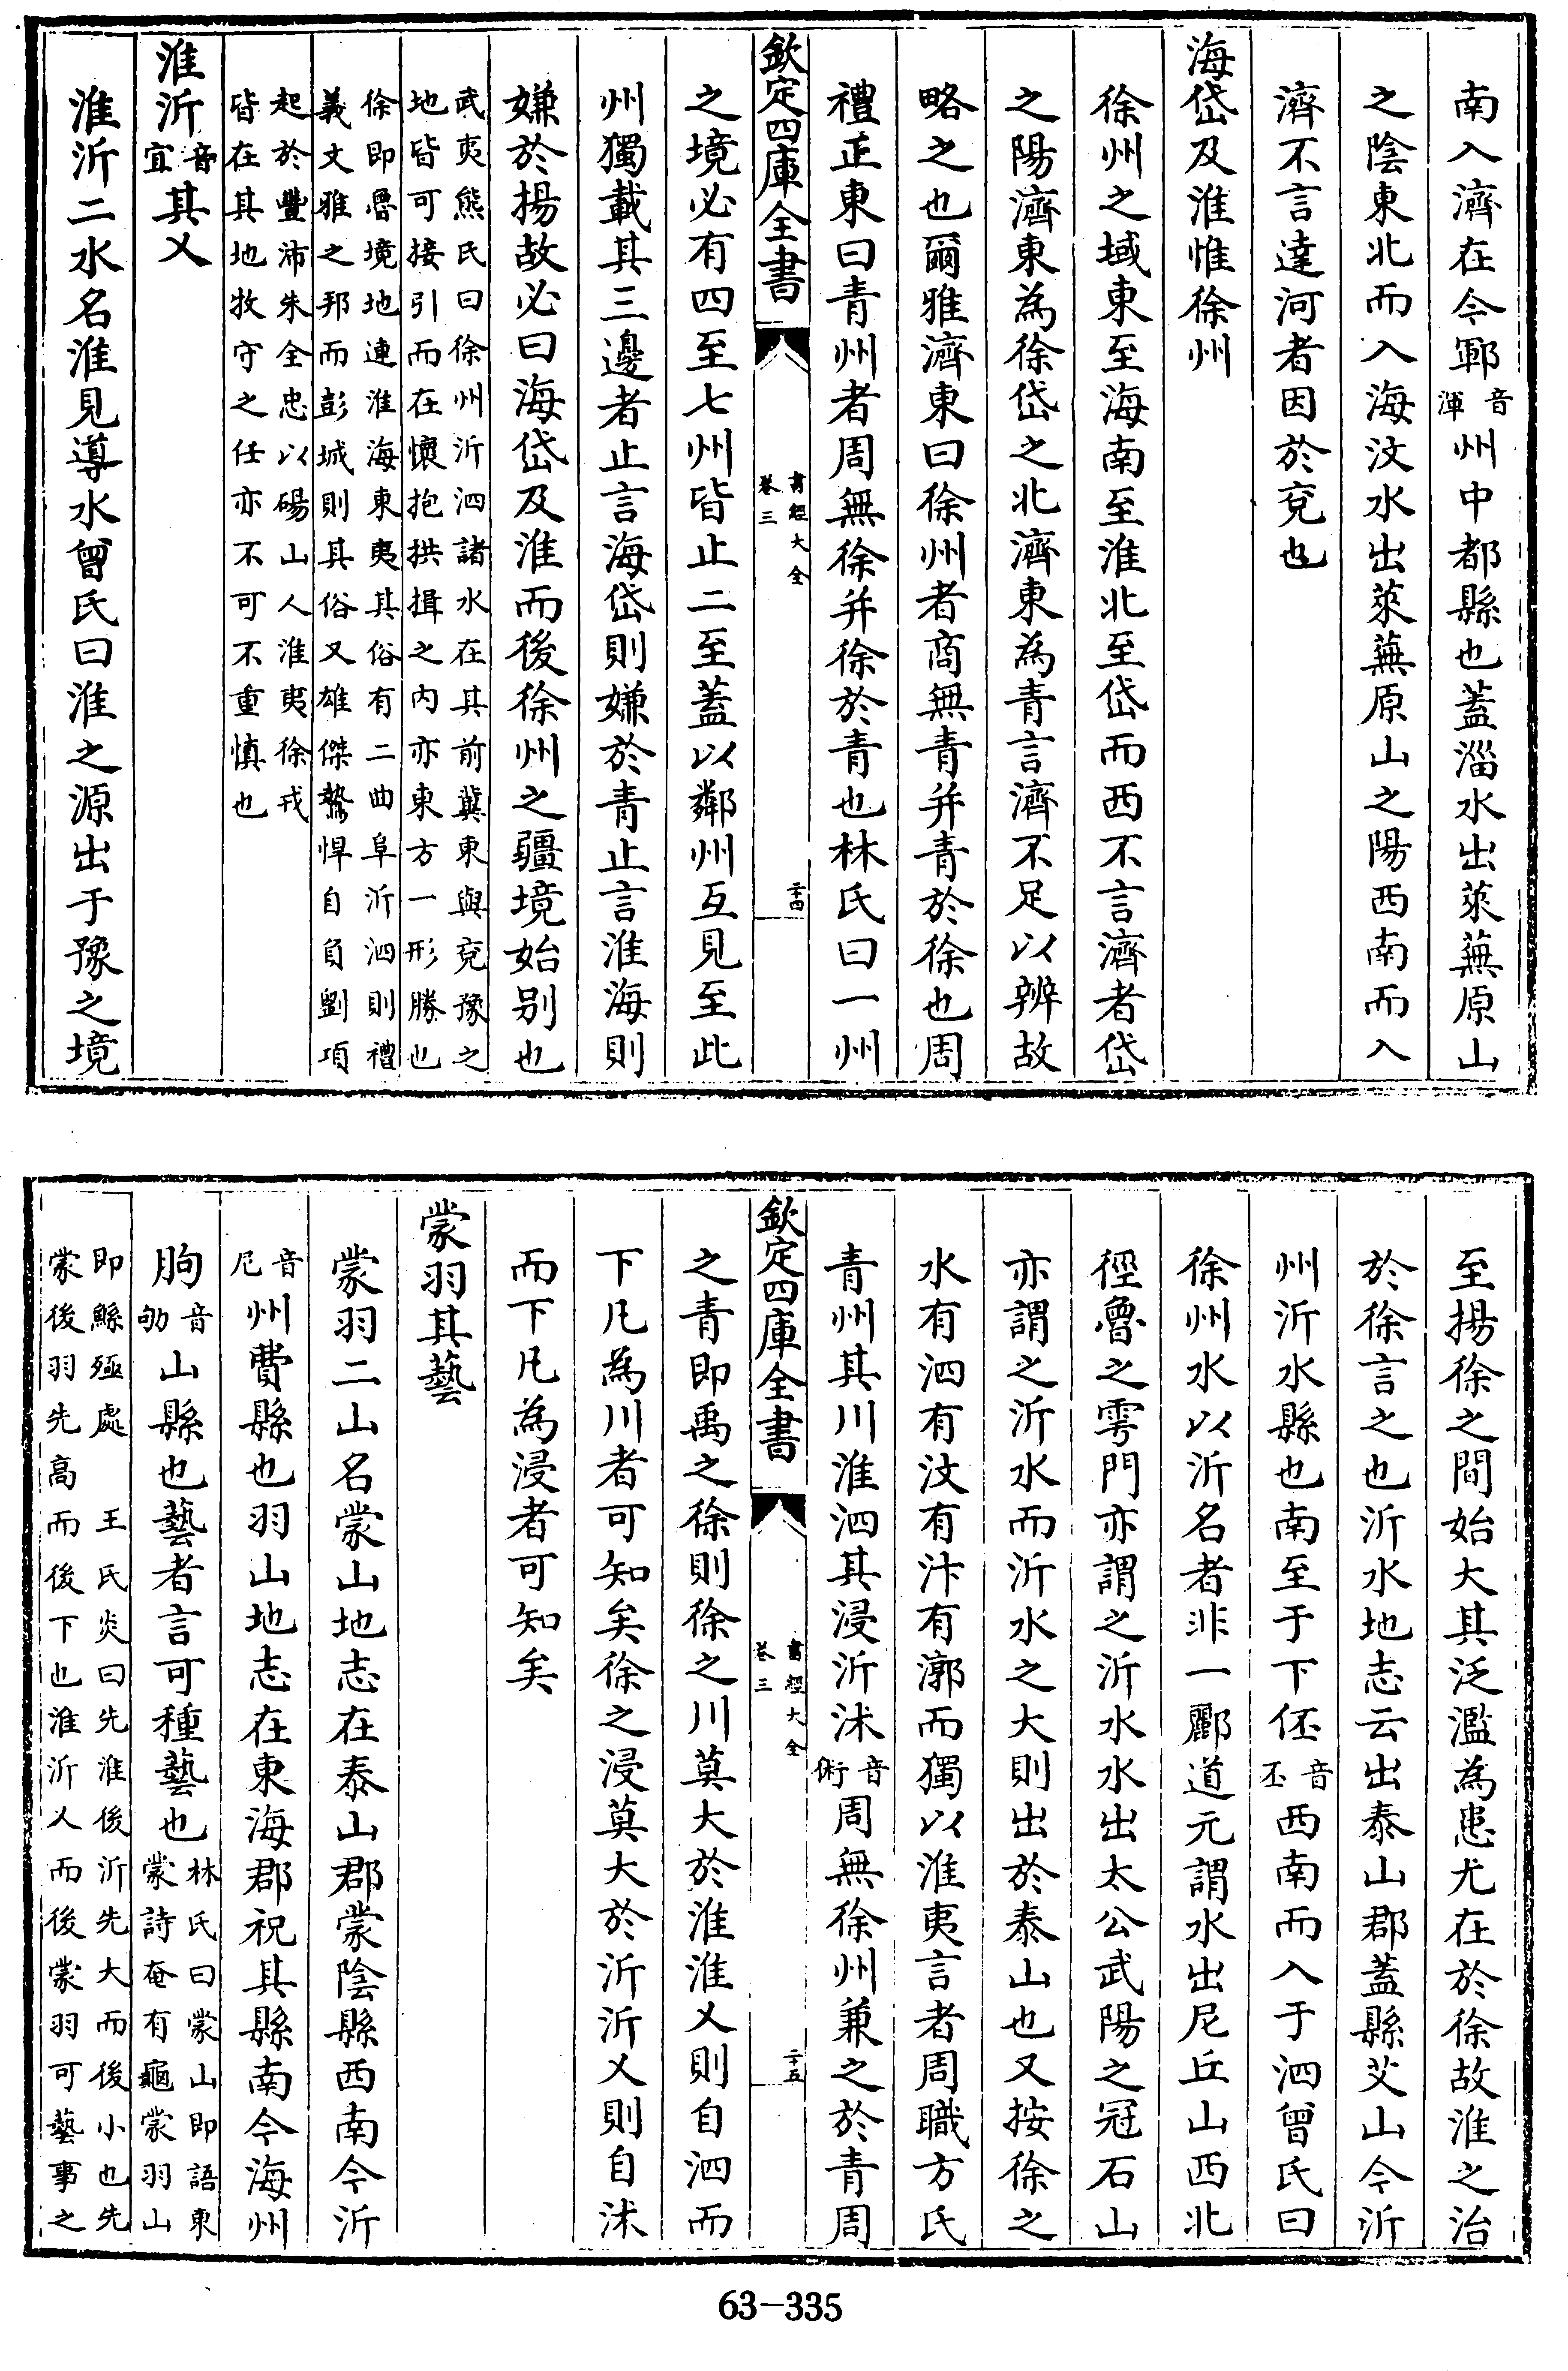 南入濟在今鄆音渾州中都縣也蓋淄水出萊蕪原山
之陰東北而入海汶水出萊蕪原山之陽西南而入
濟不言達河者因於兗也
海岱及淮惟徐州
徐州之域東至海南至淮北至岱而西不言濟者岱
之陽濟東為徐岱之北濟東為青言濟不足以辨故
略之也爾雅濟東曰徐州者商無青并青於徐也周
禮正東曰青州者周無徐并徐於青也林氏曰一州
欽定四庫全書
書經大全
卷三
二十四
之境必有四至七州皆止二至蓋以鄰州互見至此
州獨載其三邊者止言海岱則嫌於青止言淮海則
嫌於揚故必曰海岱及淮而後徐州之疆境始别也
武夷熊氏曰徐州沂泗諸水在其前冀東與兗豫之
地皆可接引而在懷抱拱揖之内亦東方一形勝也
徐即魯境地連淮海東夷其俗有二曲阜沂泗則禮
義文雅之邦而彭城則其俗又雄傑鷙悍自負劉項
起於豐沛朱全忠以碭山人淮夷徐戎
皆在其地牧守之任亦不可不重慎也
淮沂音宜其乂
淮沂二水名淮見導水曾氏曰淮之源出于豫之境
至揚徐之間始大其泛濫為患尤在於徐故淮之治
於徐言之也沂水地志云出泰山郡蓋縣艾山今沂
州沂水縣也南至于下邳音丕西南而入于泗曾氏曰
徐州水以沂名者非一酈道元謂水出尼丘山西北
徑魯之雩門亦謂之沂水水出太公武陽之冠石山
亦謂之沂水而沂水之大則出於泰山也又按徐之
水有泗有汶有汴有漷而獨以淮夷言者周職方氏
青州其川淮泗其浸沂沭音術周無徐州兼之於青周
欽定四庫全書
書經大全
卷三
二十五
之青即禹之徐則徐之川莫大於淮淮乂則自泗而
下凡為川者可知矣徐之浸莫大於沂沂乂則自沭
而下凡為浸者可知矣
蒙羽其藝
蒙羽二山名蒙山地志在泰山郡蒙陰縣西南今沂
音尼州費縣也羽山地志在東海郡祝其縣南今海州
朐音劬山縣也藝者言可種藝也林氏曰蒙山即語東蒙詩奄有龜蒙羽山
即鯀殛處 王氏炎曰先淮後沂先大而後小也先
蒙後羽先高而後下也淮沂乂而後蒙羽可藝事之
63-335